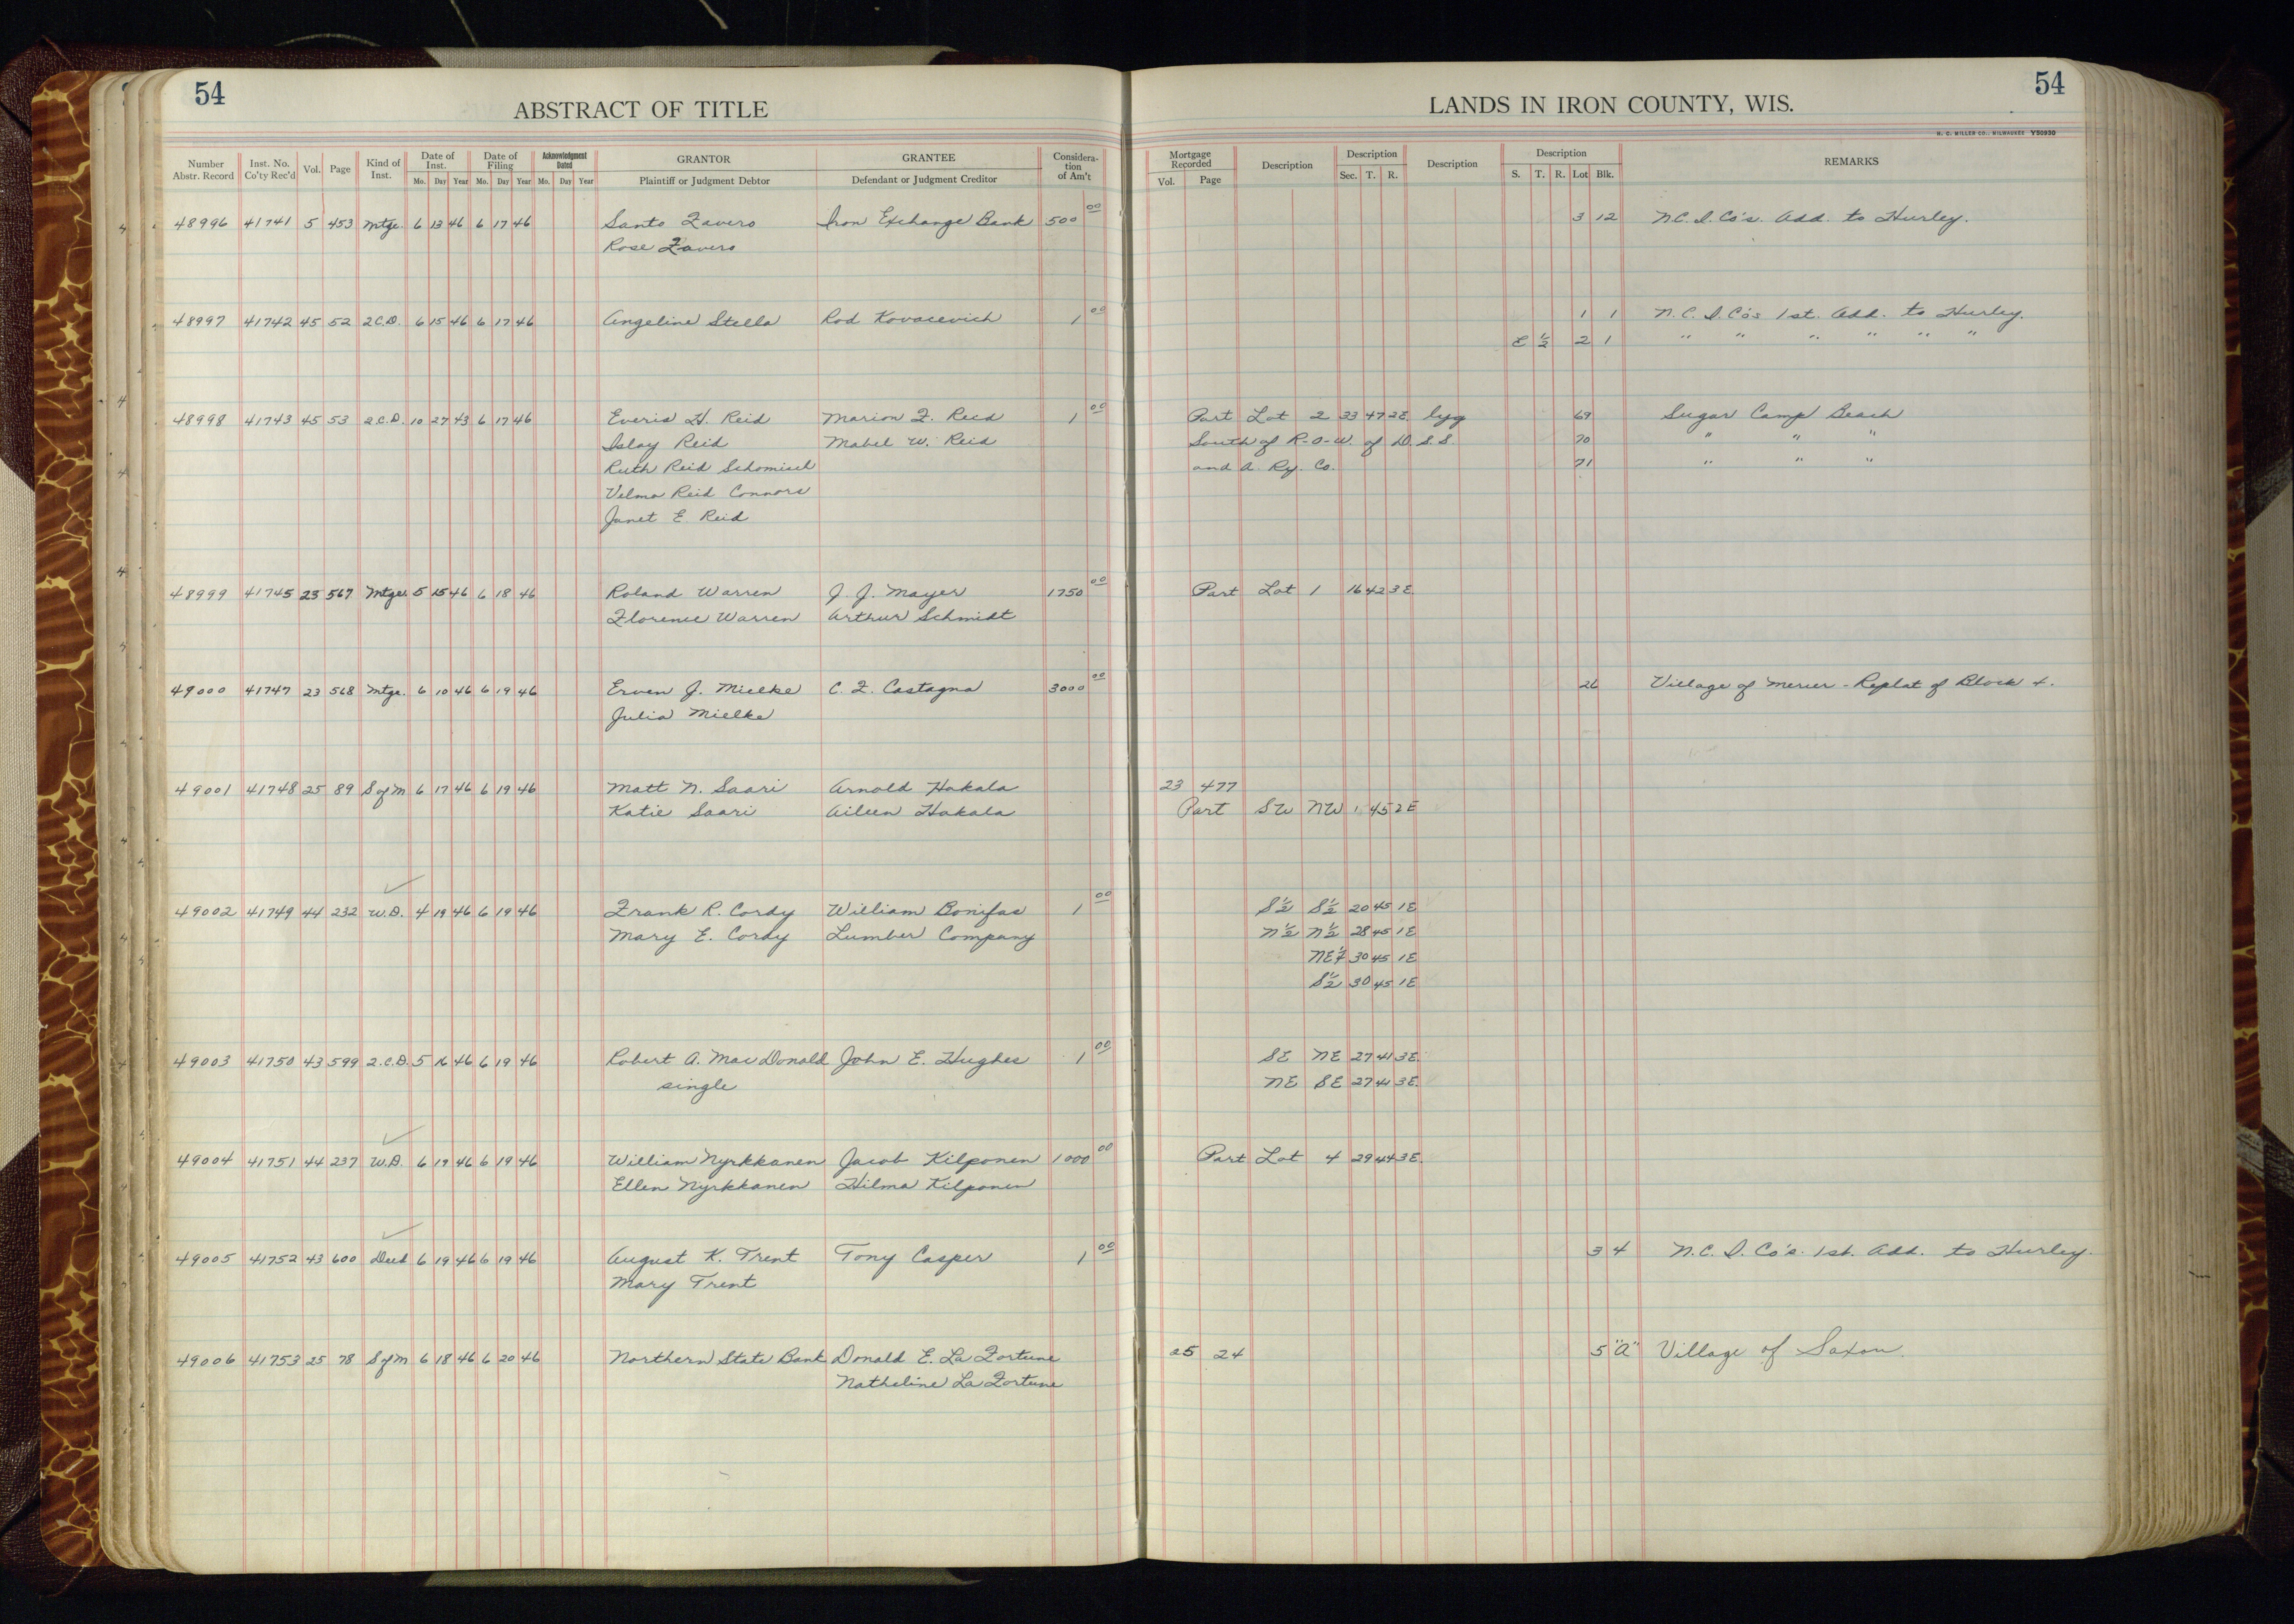 54
ABSTRACT OF TITLE
LANDS IN IRON COUNTY, WIS.
54
H. C. MILLER CO., MILWAUKEE Y50930
Number Abstr. Record Inst. No. Co'ty Rec'd Vol. Page Kind of Inst. Date of Inst. Date of Filing Acknowledgment Dated GRANTOR GRANTEE Considera-tion of Am't Mortgage Recorded Description Description Description Description REMARKS
Mo. Day Year Mo. Day Year Mo. Day Year Plaintiff or Judgment Debtor Defendant or Judgment Creditor Vol. Page Sec. T. R. S. T. R. Lot Blk.
48996 41741 5 453 Mtge. 6 13 46 6 17 46 Santo Zavero Iron Exchange Bank 500 00 3 12 N.C.I.Co's. Add. to Hurley.
Rose Zavero
48997 41742 45 52 2.C.D. 6 15 46 6 17 46 Angeline Stella Rod Kovacevich 1 00 1 1 N.C.I.Co's 1st. Add. to Hurley.
E 1/2 2 1 " " " " " "
48998 41743 45 53 2.C.D. 10 27 43 6 17 46 Everis H. Reid Marion F. Reid 1 00 Part Lot 2 33 47 2E. lyg 69 Sugar Camp Beach
Islay Reid Mabel W. Reid South of R-O-W. of D.S.S. 70 " " "
Ruth Reid Schomisch and A. Ry. Co. 71 " " "
Velma Reid Connors
Janet E. Reid
48999 41745 23 567 Mtge. 5 15 46 6 18 46 Roland Warren J. J. Mayer 1750 00 Part Lot 1 16 42 3E.
Florence Warren Arthur Schmidt
49000 41747 23 568 Mtge. 6 10 46 6 19 46 Erven J. Mielke C. F. Castagna 3000 00 26 Village of Mercer - Replat of Block 4.
Julia Mielke
49001 41748 25 89 S of M 6 17 46 6 19 46 Matt N. Saari Arnold Hakala 23 477
Katie Saari Aileen Hakala Part SW NW 1 45 2E
49002 41749 44 232 W.D. 4 19 46 6 19 46 Frank R. Cordy William Bonifas 1 00 S 1/2 S 1/2 20 45 1E
Mary E. Cordy Lumber Company N 1/2 N 1/2 28 45 1E
NE 1/4 30 45 1E
S 1/2 30 45 1E
49003 41750 43 599 2.C.D. 5 16 46 6 19 46 Robert A. MacDonald John E. Hughes 1 00 SE NE 27 41 3E.
single NE SE 27 41 3E.
49004 41751 44 237 W.D. 6 19 46 6 19 46 William Nyrkkanen Jacob Kilponen 1000 00 Part Lot 4 29 44 3E.
Ellen Nyrkkanen Hilma Kilponen
49005 41752 43 600 Deed 6 19 46 6 19 46 August K. Trent Tony Casper 1 00 3 4 N.C.I.Co's. 1st. Add. to Hurley.
Mary Trent
49006 41753 25 78 S of M 6 18 46 6 20 46 Northern State Bank Donald E. La Fortune 25 24 5 "A" Village of Saxon.
Natheline La Fortune